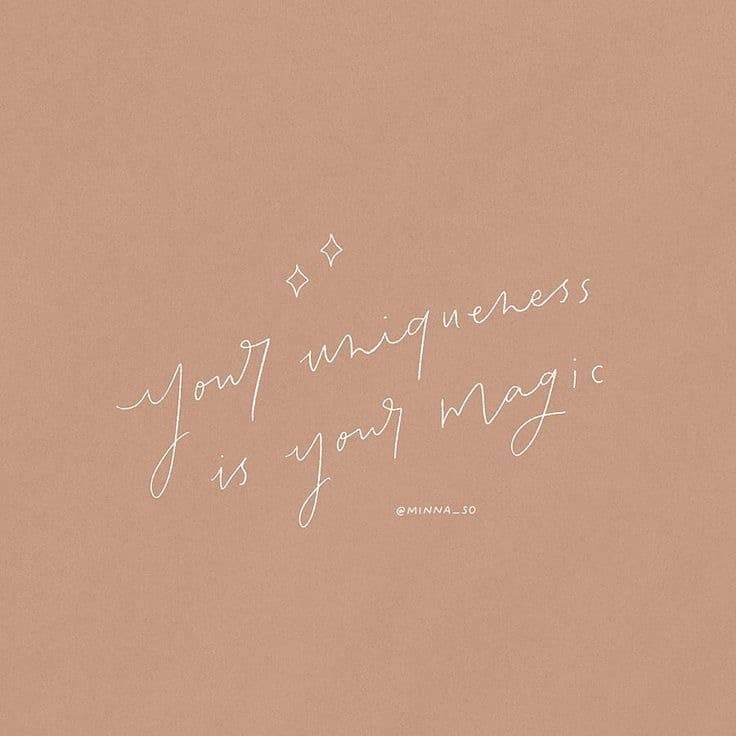 your uniqueness
is your magic
@MINNA_SO